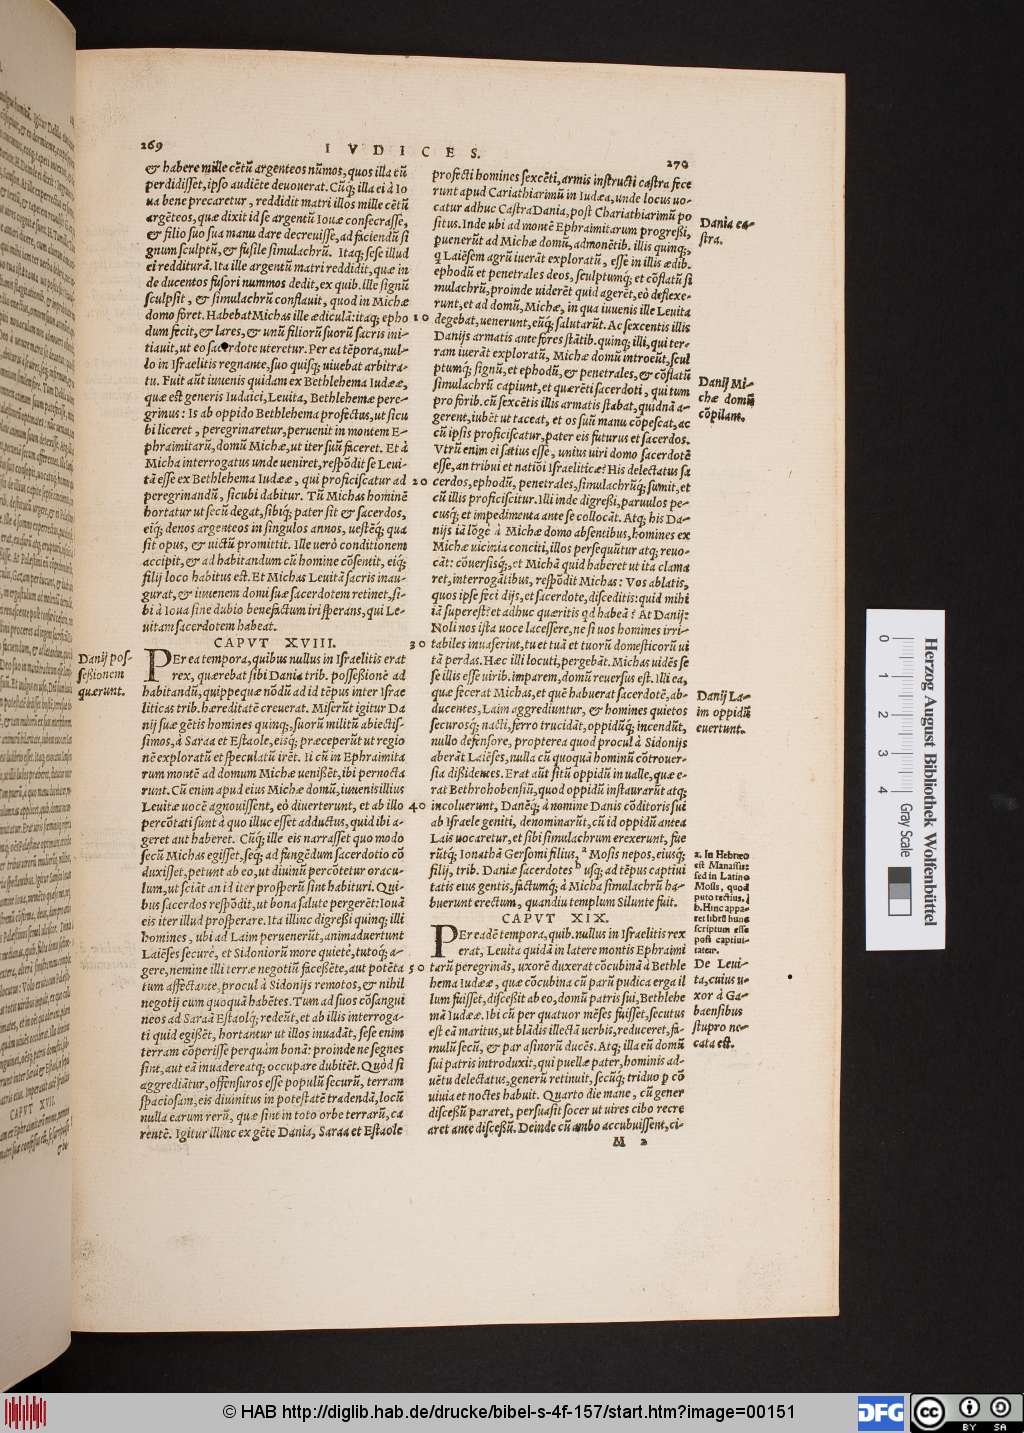 269
IVDICES.
270
& habere mille cẽtũ argenteos nũmos, quos illa cũ
perdidisset, ipso audiẽte deuouerat. Cũq; illa ei à Io
ua bene precaretur, reddidit matri illos mille cẽtũ
argẽteos, quæ dixit id se argentũ Iouæ consecrasse,
& filio suo sua manu dare decreuisse, ad faciendũ si
gnum sculptũ, & fusile simulachrũ. Itaq; sese illud
ei redditurã. Ita ille argentũ matri reddidit, quæ in
de ducentos fusori nummos dedit, ex quib. ille signũ
sculpsit, & simulachrũ conflauit, quod in Michæ
domo foret. Habebat Michas ille ædiculã: itaq; epho
dum fecit, & lares, & unũ filiorũ suorũ sacris ini-
tiauit, ut eo sacerdote uteretur. Per ea tẽpora, nul-
lo in Israelitis regnante, suo quisq; uiuebat arbitra-
tu. Fuit aũt iuuenis quidam ex Bethlehema Iudææ,
quæ est generis Iudaici, Leuita, Bethlehemæ pere-
grinus: Is ab oppido Bethlehema profectus, ut sicu
bi liceret, peregrinaretur, peruenit in montem E-
phraimitarũ, domũ Michæ, ut iter suũ faceret. Et à
Micha interrogatus unde ueniret, respõdit se Leui-
tã esse ex Bethlehema Iudææ, qui proficiscatur ad
peregrinandũ, sicubi dabitur. Tũ Michas hominẽ
hortatur ut secũ degat, sibiq; pater sit & sacerdos,
eiq; denos argenteos in singulos annos, uestẽq; qua
sit opus, & uictũ promittit. Ille uerò conditionem
accipit, & ad habitandum cũ homine cõsentit, eiq;
filij loco habitus est. Et Michas Leuitã sacris inau-
gurat, & iuuenem domi suæ sacerdotem retinet, si-
bi à Ioua sine dubio benefactum iri sperans, qui Le-
uitam sacerdotem habeat.
CAPVT XVIII.
PEr ea tempora, quibus nullus in Israelitis erat
rex, quærebat sibi Dania trib. possessionẽ ad
habitandũ, quippe quæ nõdũ ad id tẽpus inter Israe
liticas trib. hæreditatẽ creuerat. Miserũt igitur Da
nij suæ gẽtis homines quinq;, suorũ militũ abiectis-
simos, à Saraa et Estaole, eisq; præceperũt ut regio
nẽ exploratũ et speculatũ irẽt. Ii cũ in Ephraimita
rum montẽ ad domum Michæ uenissẽt, ibi pernocta
runt. Cũ enim apud eius Michæ domũ, iuuenis illius
Leuitæ uocẽ agnouissent, eò diuerterunt, et ab illo
percõtati sunt à quo illuc esset adductus, quid ibi a-
geret aut haberet. Cũq; ille eis narrasset quo modo
secũ Michas egisset, seq; ad fungẽdum sacerdotio cõ
duxisset, petunt ab eo, ut diuinũ percõtetur oracu-
lum, ut sciãt an id iter prosperũ sint habituri. Qui-
bus sacerdos respõdit, ut bona salute pergerẽt: Iouã
eis iter illud prosperare. Ita illinc digressi quinq; illi
homines, ubi ad Laim peruenerũt, animaduertunt
Laiẽses securè, et Sidoniorũ more quietè, tutoq; a-
gere, nemine illi terræ negotiũ facessẽte, aut potẽta
tum affectante, procul à Sidonijs remotos, & nihil
negotij cum quoquã habẽtes. Tum ad suos cõsangui
neos ad Saraã Estaolq; redeũt, et ab illis interroga-
ti quid egissẽt, hortantur ut illos inuadãt, sese enim
terram cõperisse perquàm bonã: proinde ne segnes
sint, aut eã inuadere atq; occupare dubitẽt. Quòd si
aggrediãtur, offensuros esse populũ securũ, terram
spaciosam, eis diuinitus in potestatẽ tradendã, locũ
nulla earum rerũ, quæ sint in toto orbe terrarũ, ca
rentẽ. Igitur illinc ex gẽte Dania, Saraa et Estaole
Danij pos-
sessionem
quærunt.
10
20
30
40
50
profecti homines sexcẽti, armis instructi castra fece
runt apud Cariathiarimũ in Iudæa, unde locus uo-
catur adhuc Castra Dania, post Chariathiarimũ po
situs. Inde ubi ad montẽ Ephraimitarum progressi,
puenerũt ad Michæ domũ, admonẽt ib. illis quinq;,
q̃ Laiẽsem agrũ iuerãt exploratũ, esse in illis ædib.
ephodũ et penetrales deos, sculptumq; et cõflatũ si
mulachrũ, proinde uiderẽt quid agerẽt, eò deflexe-
runt, et ad domũ, Michæ, in qua iuuenis ille Leuita
degebat, uenerunt, eũq; salutarũt. Ac sexcentis illis
Danijs armatis ante fores stãtib. quinq; illi, qui ter-
ram iuerãt exploratũ, Michæ domũ introeũt, scul
ptumq; signũ, et ephodũ, & penetrales, & cõflatũ
simulachrũ capiunt, et quærẽti sacerdoti, qui tum
pro forib. cũ sexcẽtis illis armatis stabat, quidnã a-
gerent, iubẽt ut taceat, et os suũ manu cõpescat, ac
cũ ipsis proficiscatur, pater eis futurus et sacerdos.
Vtrũ enim ei satius esse, unius uiri domo sacerdotẽ
esse, an tribui et natiõi Israeliticæ? His delectatus sa
cerdos, ephodũ, penetrales, simulachrũq; sumit, et
cũ illis proficiscitur. Illi inde digressi, paruulos pe-
cusq; et impedimenta ante se collocãt. Atq; his Da-
nijs iã lõgè à Michæ domo absentibus, homines ex
Michæ uicinia conciti, illos persequũtur atq; reuo-
cãt: cõuersisq;, et Michã quid haberet ut ita clama
ret, interrogãtibus, respõdit Michas: Vos ablatis,
quos ipse feci dijs, et sacerdote, disceditis: quid mihi
iã superest? et adhuc quæritis qd habeã? At Danij:
Noli nos ista uoce lacessere, ne si uos homines irri-
tabiles inuaserint, tu et tuã et tuorũ domesticorũ ui
tã perdas. Hæc illi locuti, pergebãt. Michas uidẽs se
se illis esse uirib. imparem, domũ reuersus est. Illi ea,
quæ fecerat Michas, et quẽ habuerat sacerdotẽ, ab-
ducentes, Laim aggrediuntur, & homines quietos
securosq; nacti, ferro trucidãt, oppidũq; incendũt,
nullo defensore, propterea quod procul à Sidonijs
aberãt Laiẽses, nulla cũ quoquã hominũ cõtrouer-
sia dissidentes. Erat aũt sitũ oppidũ in ualle, quæ e-
rat Bethrohobensiũ, quod oppidũ instaurarũt atq;
incoluerunt, Danẽq; à nomine Danis cõditoris sui
ab Israele geniti, denominarũt, cũ id oppidũ antea
Lais uocaretur, et sibi simulachrum erexerunt, fue
rũtq; Ionathã Gersomi filius, a Mosis nepos, eiusq;
filij, trib. Daniæ sacerdotes b usq; ad tẽpus captiui
tatis eius gentis, factumq; à Micha simulachrũ ha-
buerunt erectum, quandiu templum Silunte fuit.
CAPVT XIX.
PEr eadẽ tempora, quib. nullus in Israelitis rex
erat, Leuita quidã in latere montis Ephraimi
tarũ peregrinãs, uxorẽ duxerat cõcubinã à Bethle
hema Iudææ, quæ cõcubina cũ parũ pudica erga il
lum fuisset, discessit ab eo, domũ patris sui, Bethlehe
mã Iudææ. Ibi cũ per quatuor mẽses fuisset, secutus
est eã maritus, ut blãdis illectã uerbis, reduceret, fa-
mulũ secũ, & par asinorũ ducẽs. Atq; illa eũ domũ
sui patris introduxit, qui puellæ pater, hominis ad-
uẽtu delectatus, generũ retinuit, secũq; triduo p cõ
uiuia et noctes habuit. Quarto die mane, cũ gener
discessũ pararet, persuasit socer ut uires cibo recre
aret ante discessũ. Deinde cũ ambo accubuissent, ci-
M 2
Dania ca-
stra.
Danij Mi-
chæ domũ
cõpilant.
Danij La-
im oppidũ
euertunt.
a. In Hebræo
est Manassis:
sed in Latino
Mosis, quod
puto rectius.
b. Hinc appa-
ret librũ hunc
scriptum esse
post captiui-
tatem.
De Leui-
ta, cuius u-
xor à Ga-
baensibus
stupro ne-
cata est.
CAPVT XVII.
0 1 2 3 4
Gray Scale
Herzog August Bibliothek Wolfenbüttel
© HAB http://diglib.hab.de/drucke/bibel-s-4f-157/start.htm?image=00151
DFG
cc
BY SA